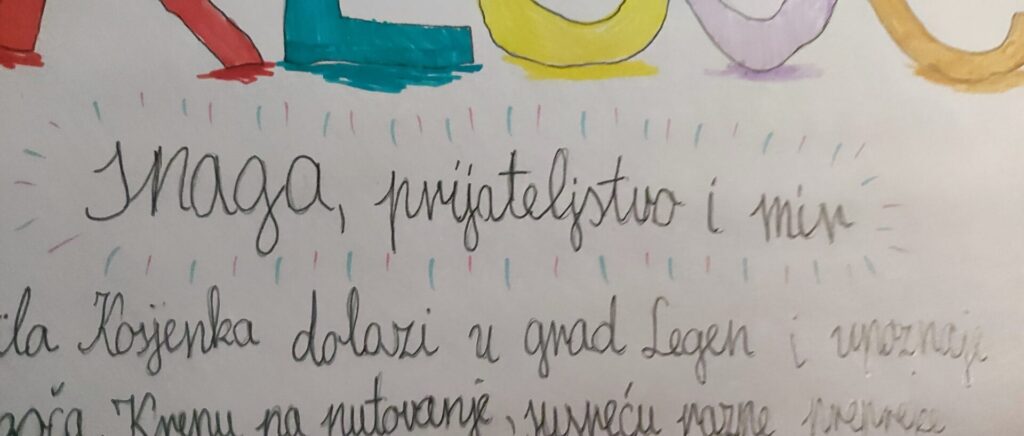 Snaga, prijateljstvo i mir
Kosjenka dolazi u grad Legen i upoznaje
Krenu na putovanje, susreću razne prepreke